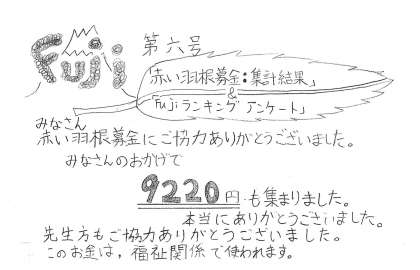 Fuji 第六号
「赤い羽根募金:集計結果」
&
「Fujiランキングアンケート」
みなさん
赤い羽根募金にご協力ありがとうございました。
みなさんのおかげで
9220円も集まりました。
本当にありがとうございました。
先生方もご協力ありがとうございました。
このお金は，福祉関係で使われます。